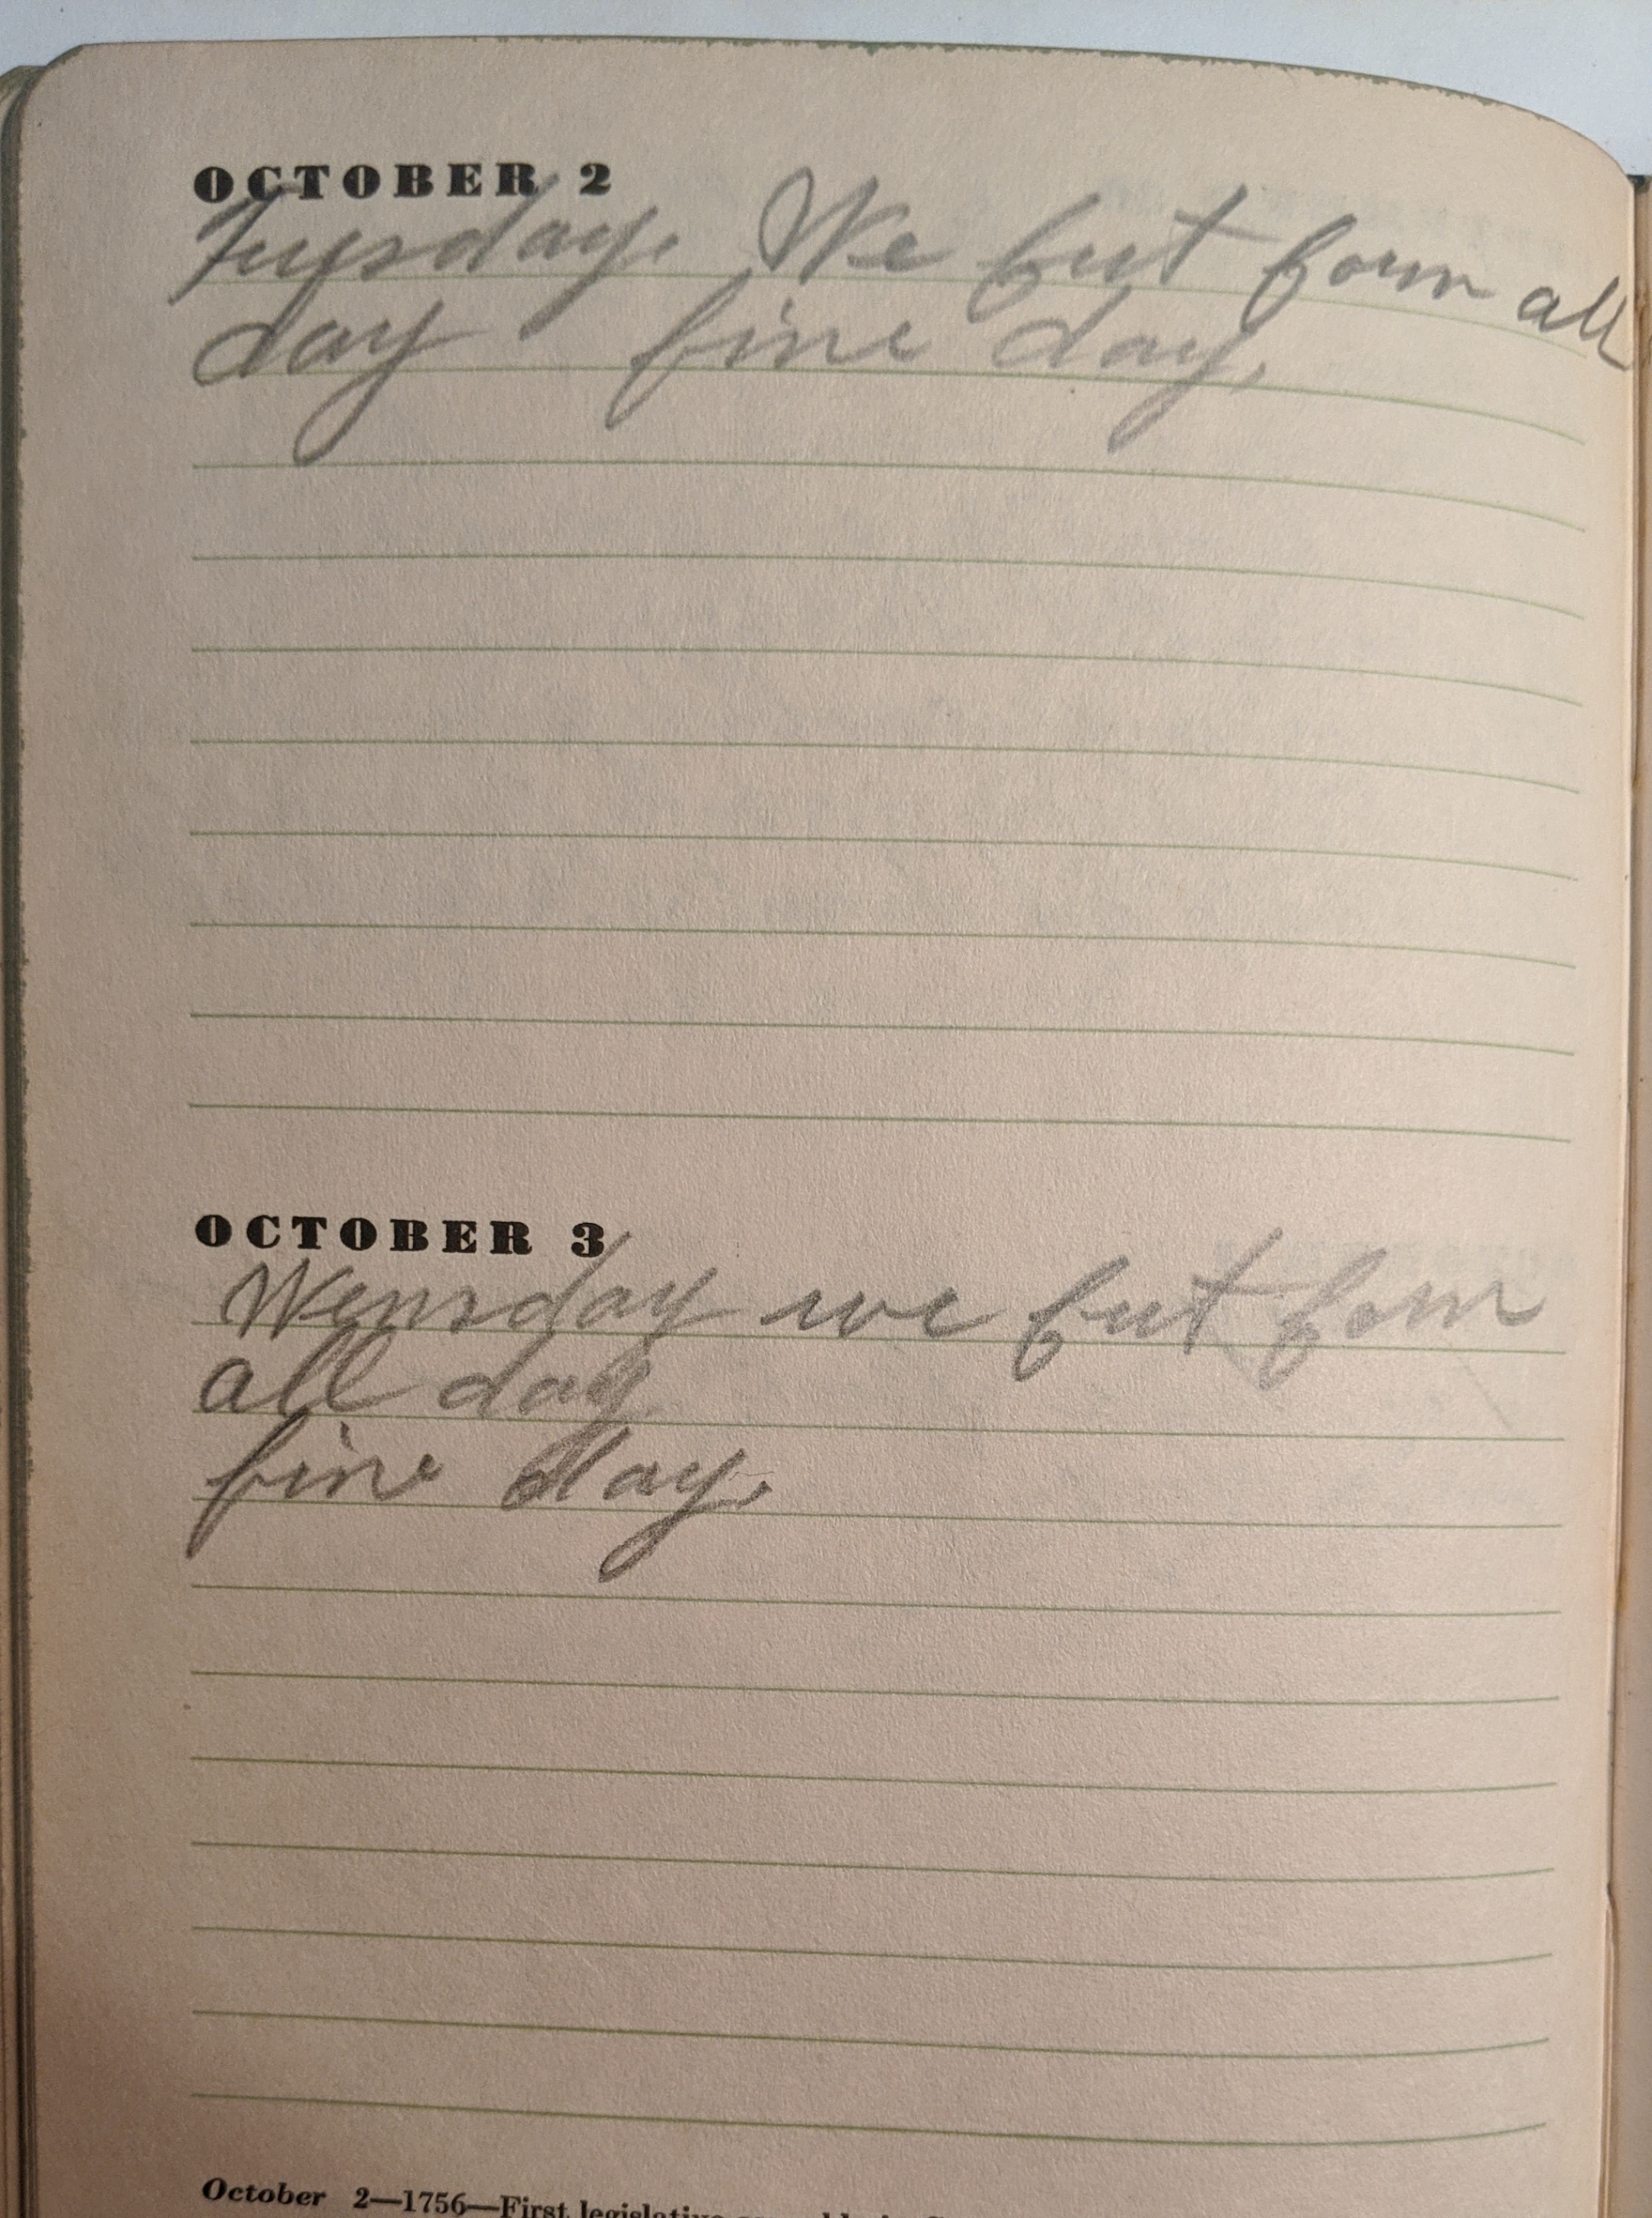 OCTOBER 2
Tuesday. We cut corn all
day fine day.
OCTOBER 3
Wensday we cut corn
all day.
fine day.
October 2—1756—First legislative